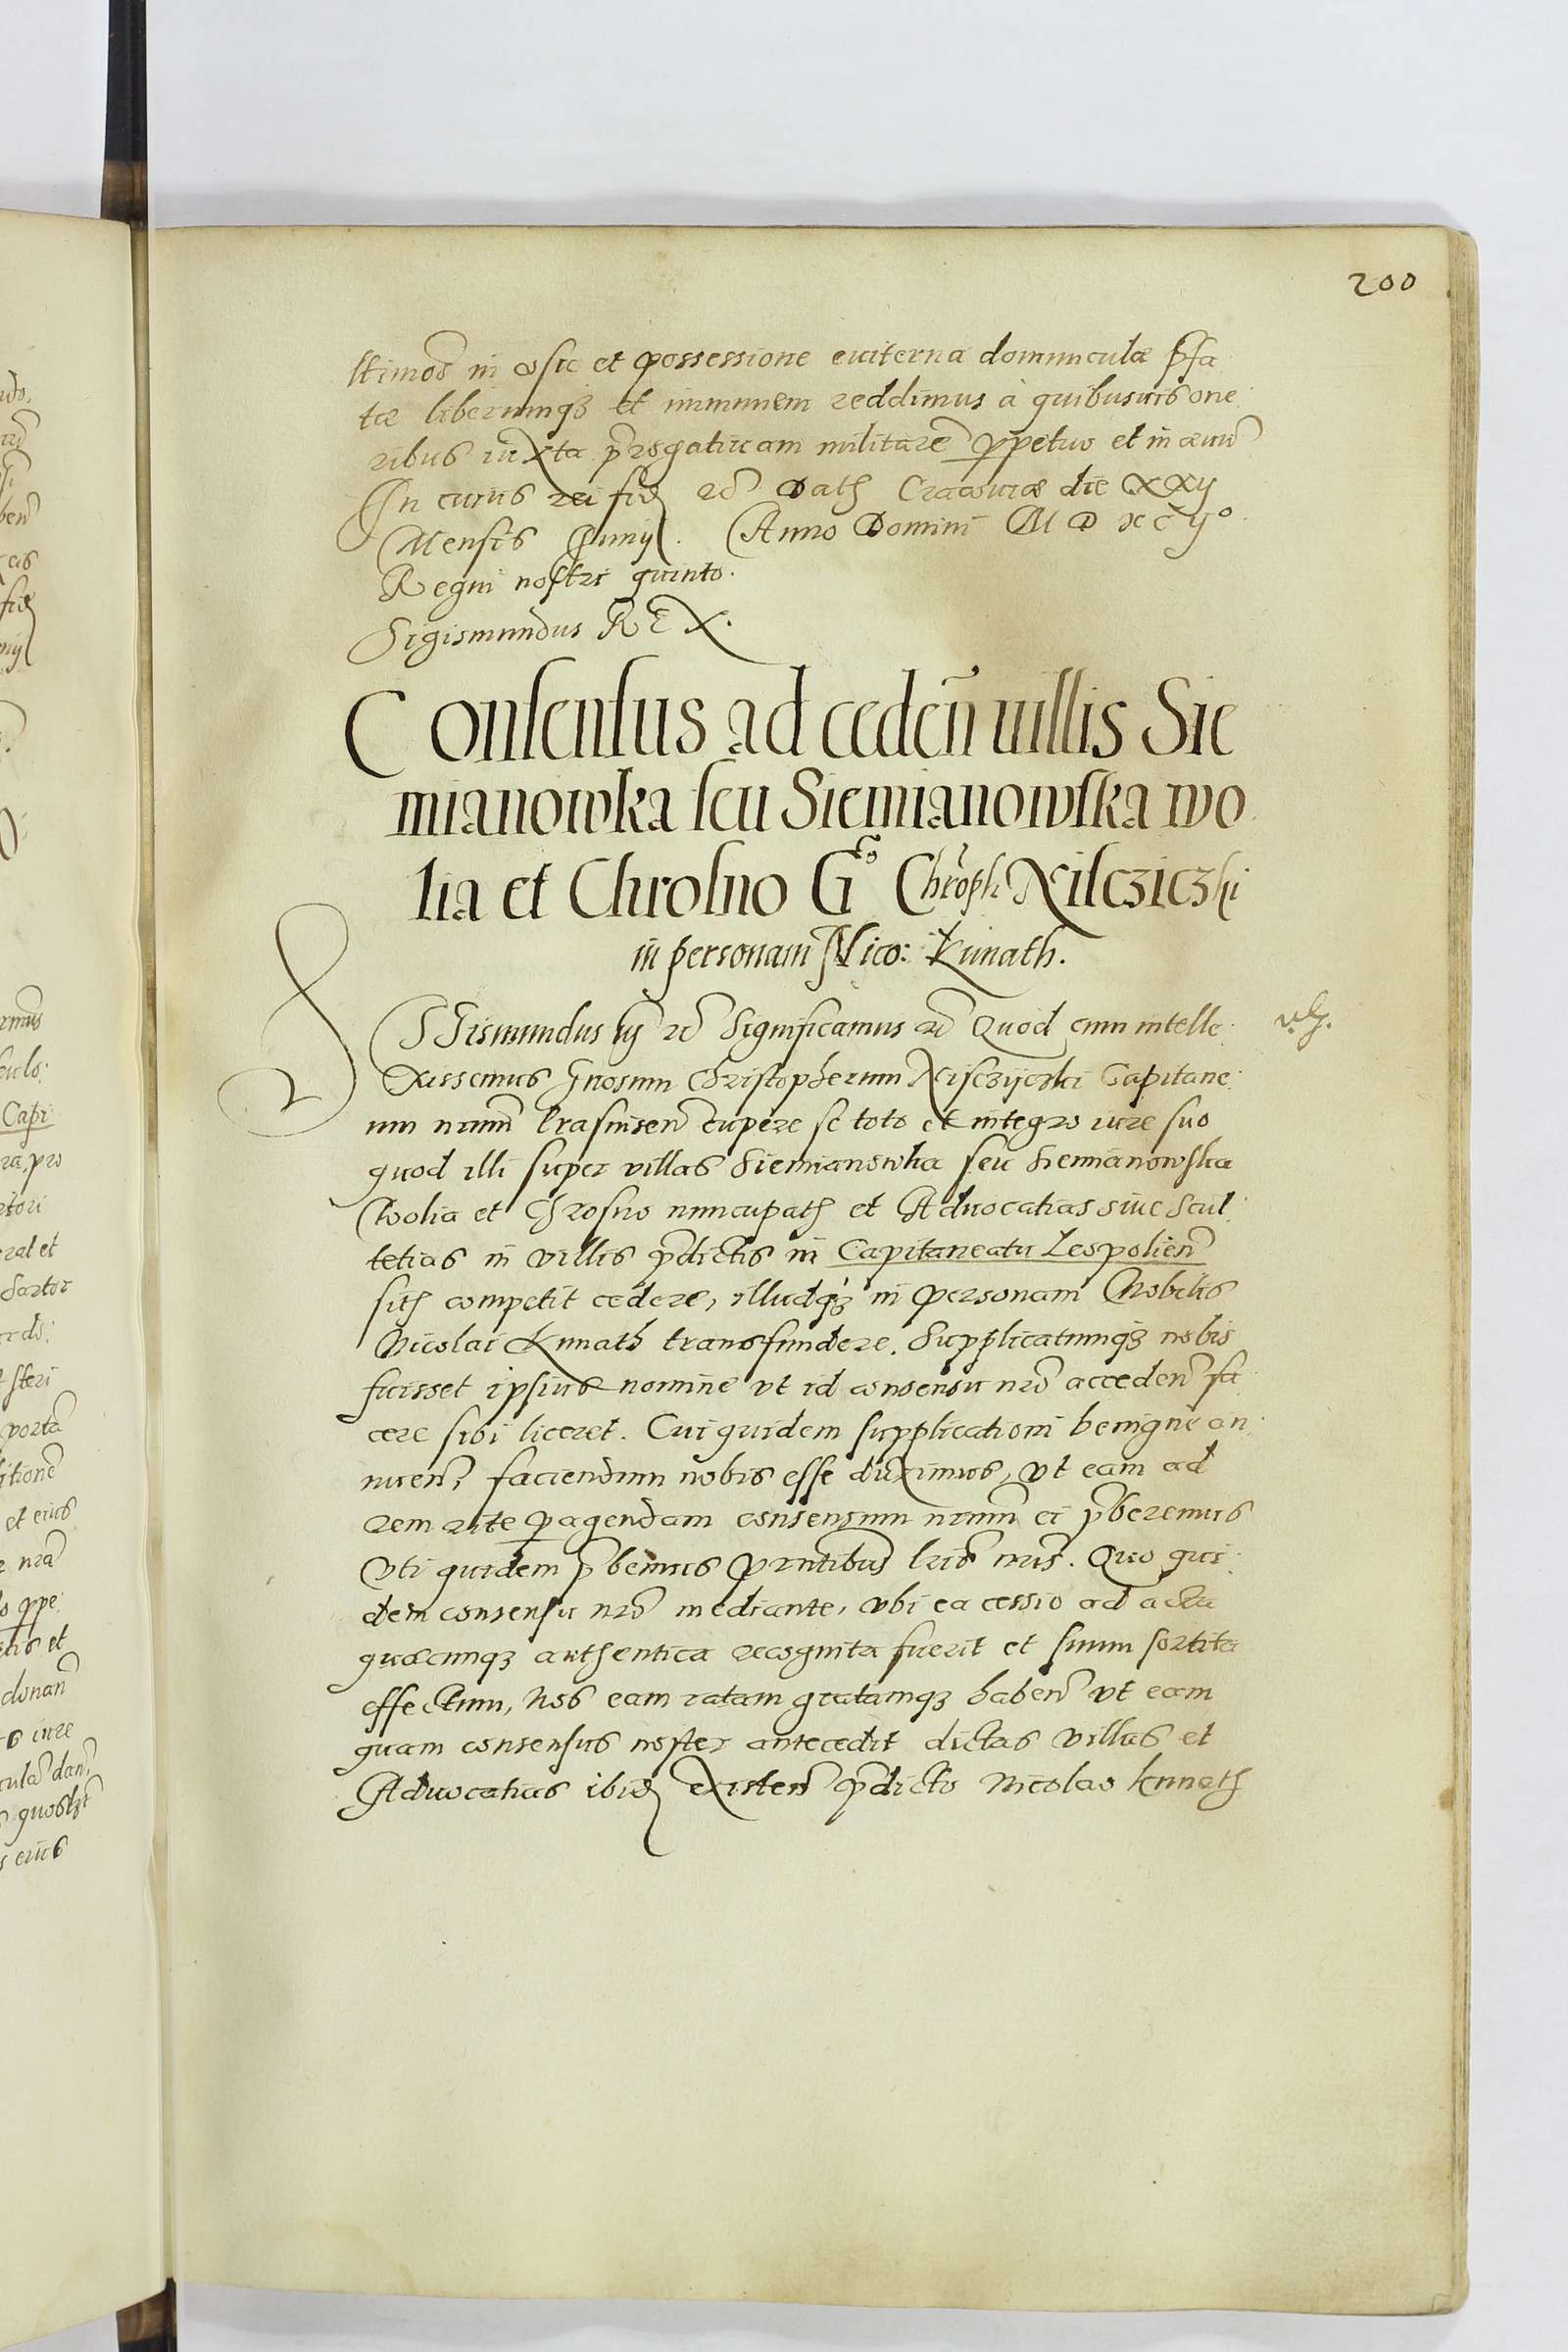 200
ltimos in usu et possessione eviterna domunculæ p̃fa
tæ liberumq̃ et immunem reddimus à quibusvis one
ribus iuxta p̃rogativam militarẽ p̱petuo et in ævum
In cuius rei fid̃ ꝛc̃ Dath Cracoviæ die XXII
Mensis Junij. Anno Domini M D XC ijº
Regni nostri quinto.
Sigismundus REX.
Consensus ad ceden̄ villis Sie
mianowka seu Siemianowska wo
lia et Chrosno G͠o Chr̃oph Nilcziczki
in personam Nico: Kunath.
SIgismundus iij ꝛc̃ Significamus ꝛc̃ Quod cum intelle
xissemus Gnosum Christopherum Nisczijczki Capitane
um nrum̃ Crasnisen̄ cupere se toto et integro iure suo
quod illi super villas Siemianowka seu Siemianowska
Wolia et Chrosno nuncupath et Advocatias sive Scul
tetias in villis p̃dictis in Capitaneatu Leopolien̄
sith competit cedere, illudq̃ in personam Nobilis
Nicolai Kunath transfundere. Supplicatumq̃ nobis
fuisset ipsius nomine ut id consensu nrõ acceden̄ fa
cere sibi liceret. Cui quidem supplicationi benigne an
nuen̄, faciendum nobis esse duximus, ut eam ad
rem rite p̱agendam consensum nrum̃ ei p̃beremus
Uti quidem p̃bemus p̃ntibus lris̃ nris̃. Quo qui
dem consensu nrõ mediante, ubi ea cessio ad acta
quæcunq̃ authentica recognita fuerit et suum sortita
effectum, Nos eam ratam gratamq̃ haben̄ ut eam
quam consensus noster antecedit dictas villas et
Advocatias ibid̃ existen̄ p̃dicto Nicolao Kunath